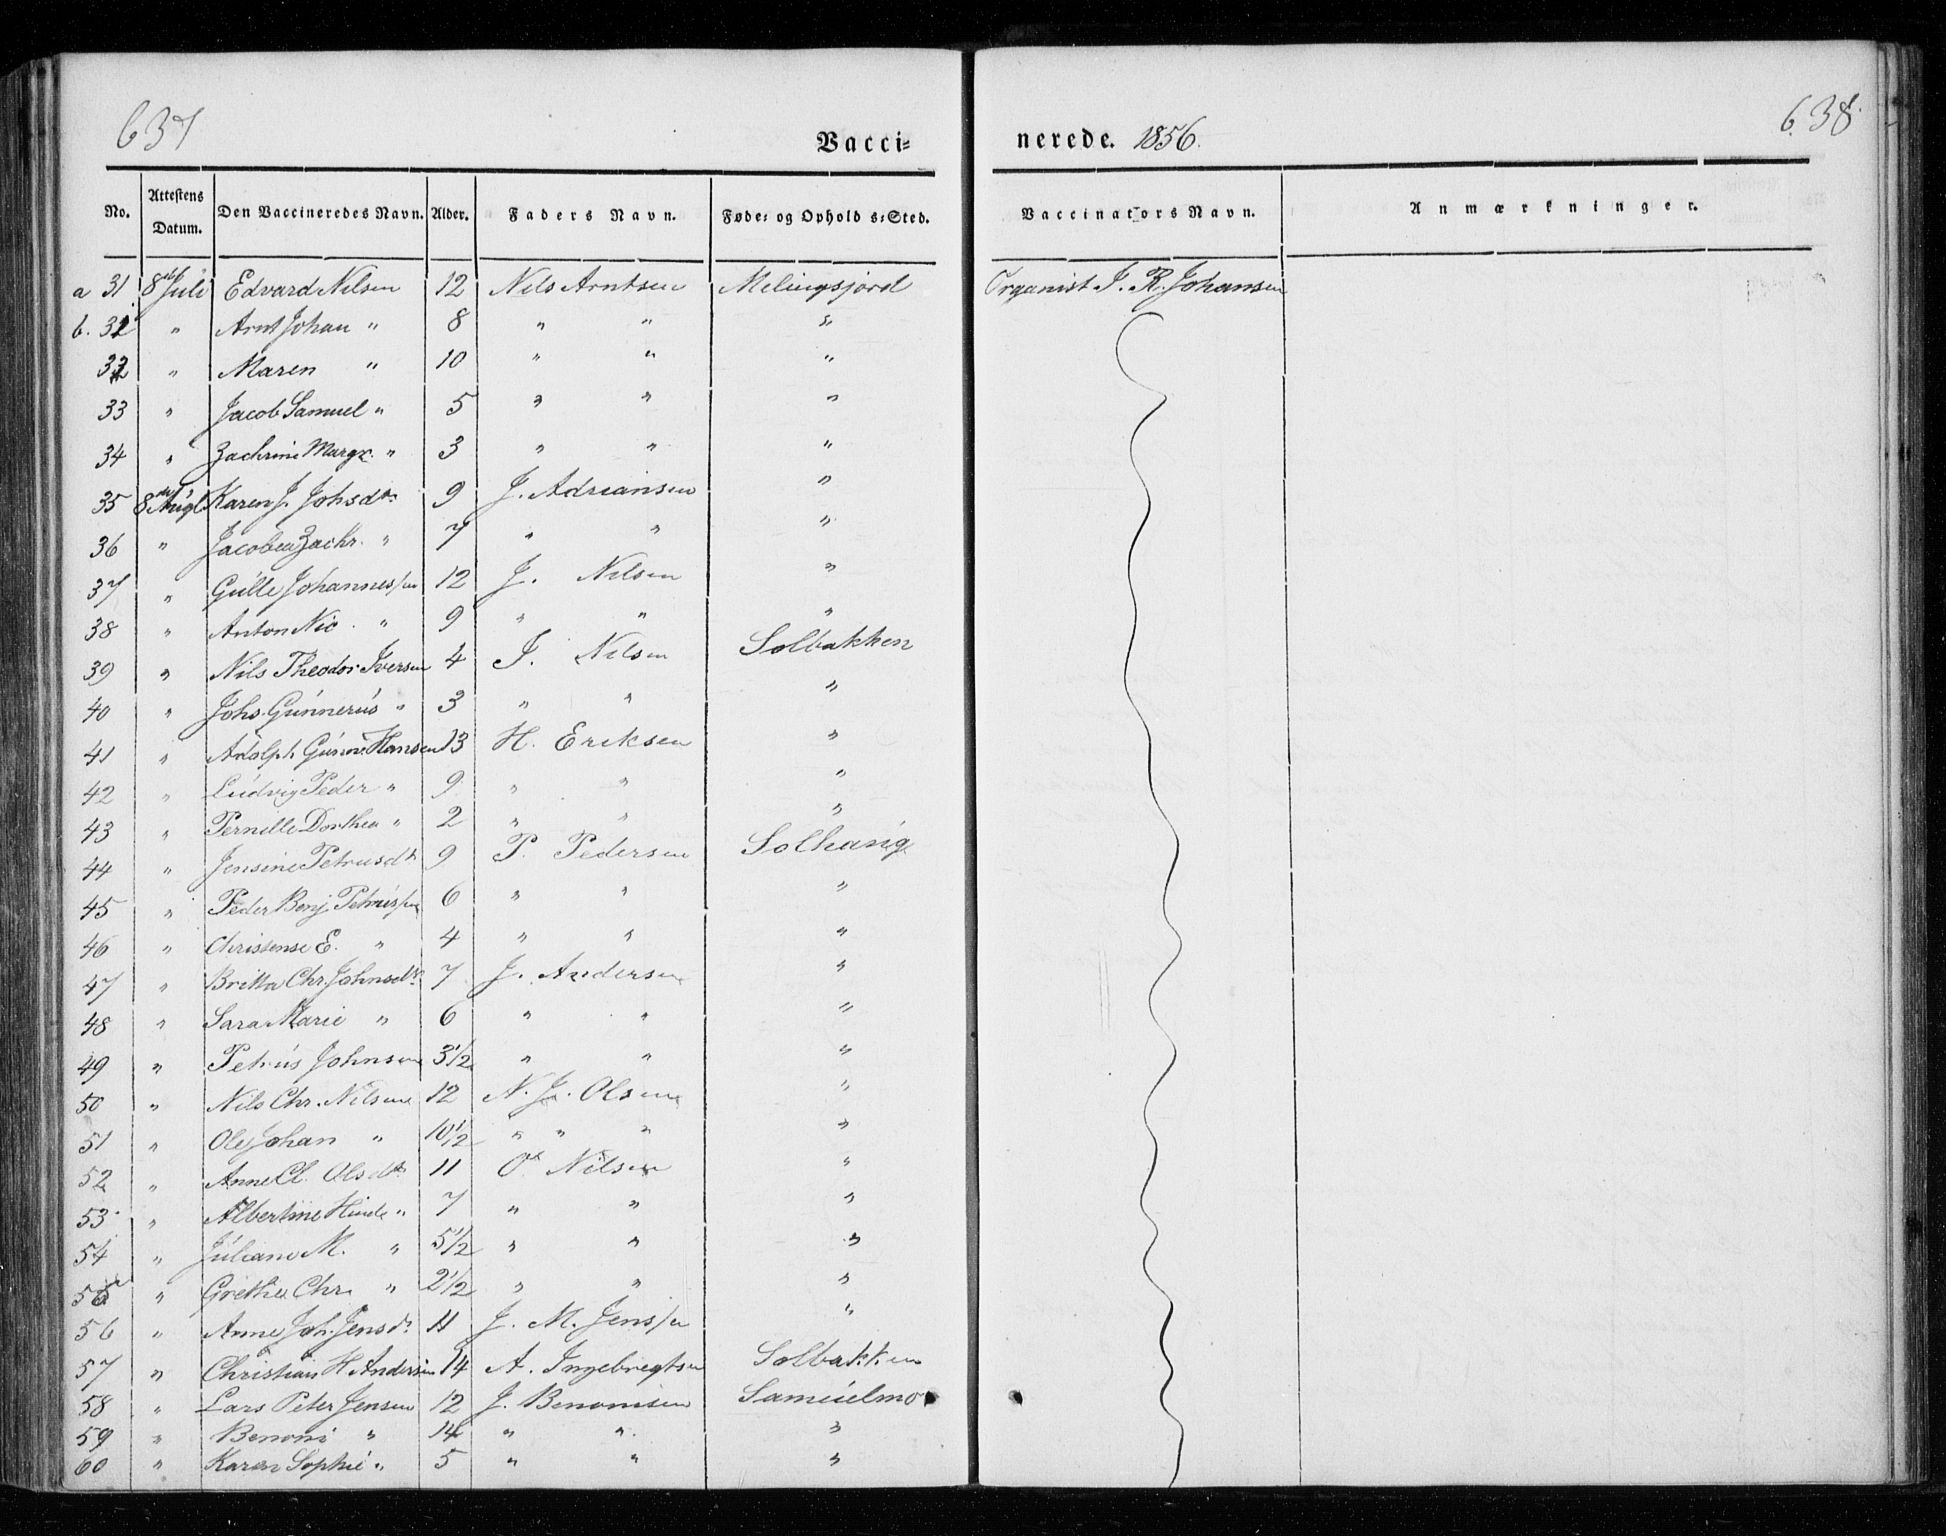 637
638
Vacci-
nerede. 1856.
No. Attestens Datum. Den Vaccineredes Navn. Alder. Faders Navn. Føde- og Opholds-Sted. Vaccinators Navn. Anmærkninger.
a 31 8de Juli Edvard Nilsen 12 Nils Arntsen Melingsjord Organist J. R. Johansen
b. 31 " Arnt Johan " 8 " " "
32 " Maren " 10 " " "
33 " Jacob Samuel " 5 " " "
34 " Zachrine Margr. " 3 " " "
35 8de Augt Karen J. Johsdtr 9 J. Adriansen "
36 " Jacobea Zachr. " 7 " " "
37 " Gulle Johannessen 12 J. Nilsen "
38 " Anton Nic. " 9 " " "
39 " Nils Theodor Iversen 4 I. Nilsen Solbakken
40 " Johs. Gunnerus " 3 " " "
41 " Adolph Hansen 13 H. Eriksen "
42 " Ludvig Peder " 9 " " "
43 " Pernille Dorthea " 2 " " "
44 " Jensine Petrusdtr 9 P. Pedersen Solhaug
45 " Peder Benj Petrussen 6 " " "
46 " Christense E. " 4 " " "
47 " Britta Chr. Johnsdtr 7 J. Andersen "
48 " Sara Marie " 6 " " "
49 " Petrus Johnsen 3 1/2 " " "
50 " Nils Chr. Nilsen 12 N. J. Olsen "
51 " Ole Johan " 10 1/2 " " " "
52 " Anne Cl. Olsdtr 11 O. Nilsen "
53 " Albertine " 7 " " "
54 " Juliane M. " 5 1/2 " " "
55 " Grethe Chr. " 2 1/2 " " "
56 " Anne Joh. Jensdr 11 J. M. Jenssen "
57 " Christian H Andersen 14 A. Ingebregtsen Solbakken
58 " Lars Peter Jensen 12 J. Benonisen Samuelmo
59 " Benoni " 14 " " "
60 " Karen Sophie " 5 " " "